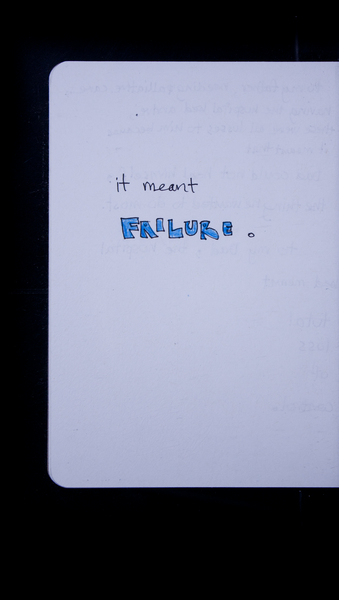 it meant
FAILURE.